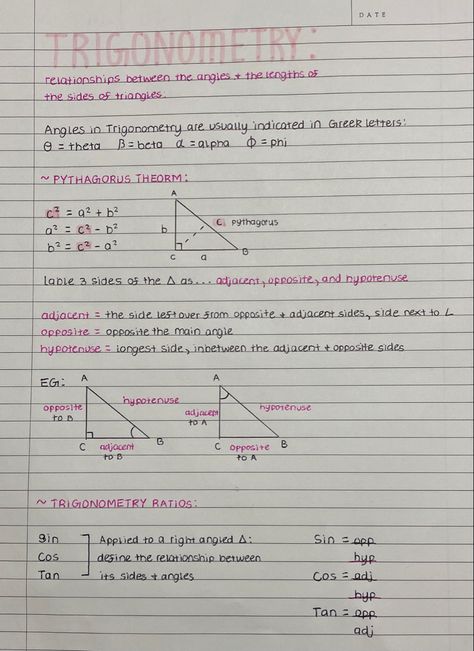 DATE
TRIGONOMETRY:
relationships between the angles + the lengths of
the sides of triangles.
Angles in Trigonometry are usually indicated in Greek letters:
θ = theta β = beta α = alpha Φ = phi
~ PYTHAGORUS THEORM:
c² = a² + b²
a² = c² - b²
b² = c² - a²
A
b
c, pythagorus
C
a
B
lable 3 sides of the Δ as... adjacent, opposite, and hypotenuse
adjacent = the side left over from opposite + adjacent sides, side next to ∠
opposite = opposite the main angle
hypotenuse = longest side, inbetween the adjacent + opposite sides
EG:
A
opposite
to B
hypotenuse
C
adjacent
to B
B
A
adjacent
to A
hypotenuse
C
opposite
to A
B
~ TRIGONOMETRY RATIOS:
Sin
Cos
Tan
Applied to a right angled Δ:
define the relationship between
its sides + angles
Sin = opp
hyp
Cos = adj
hyp
Tan = opp
adj